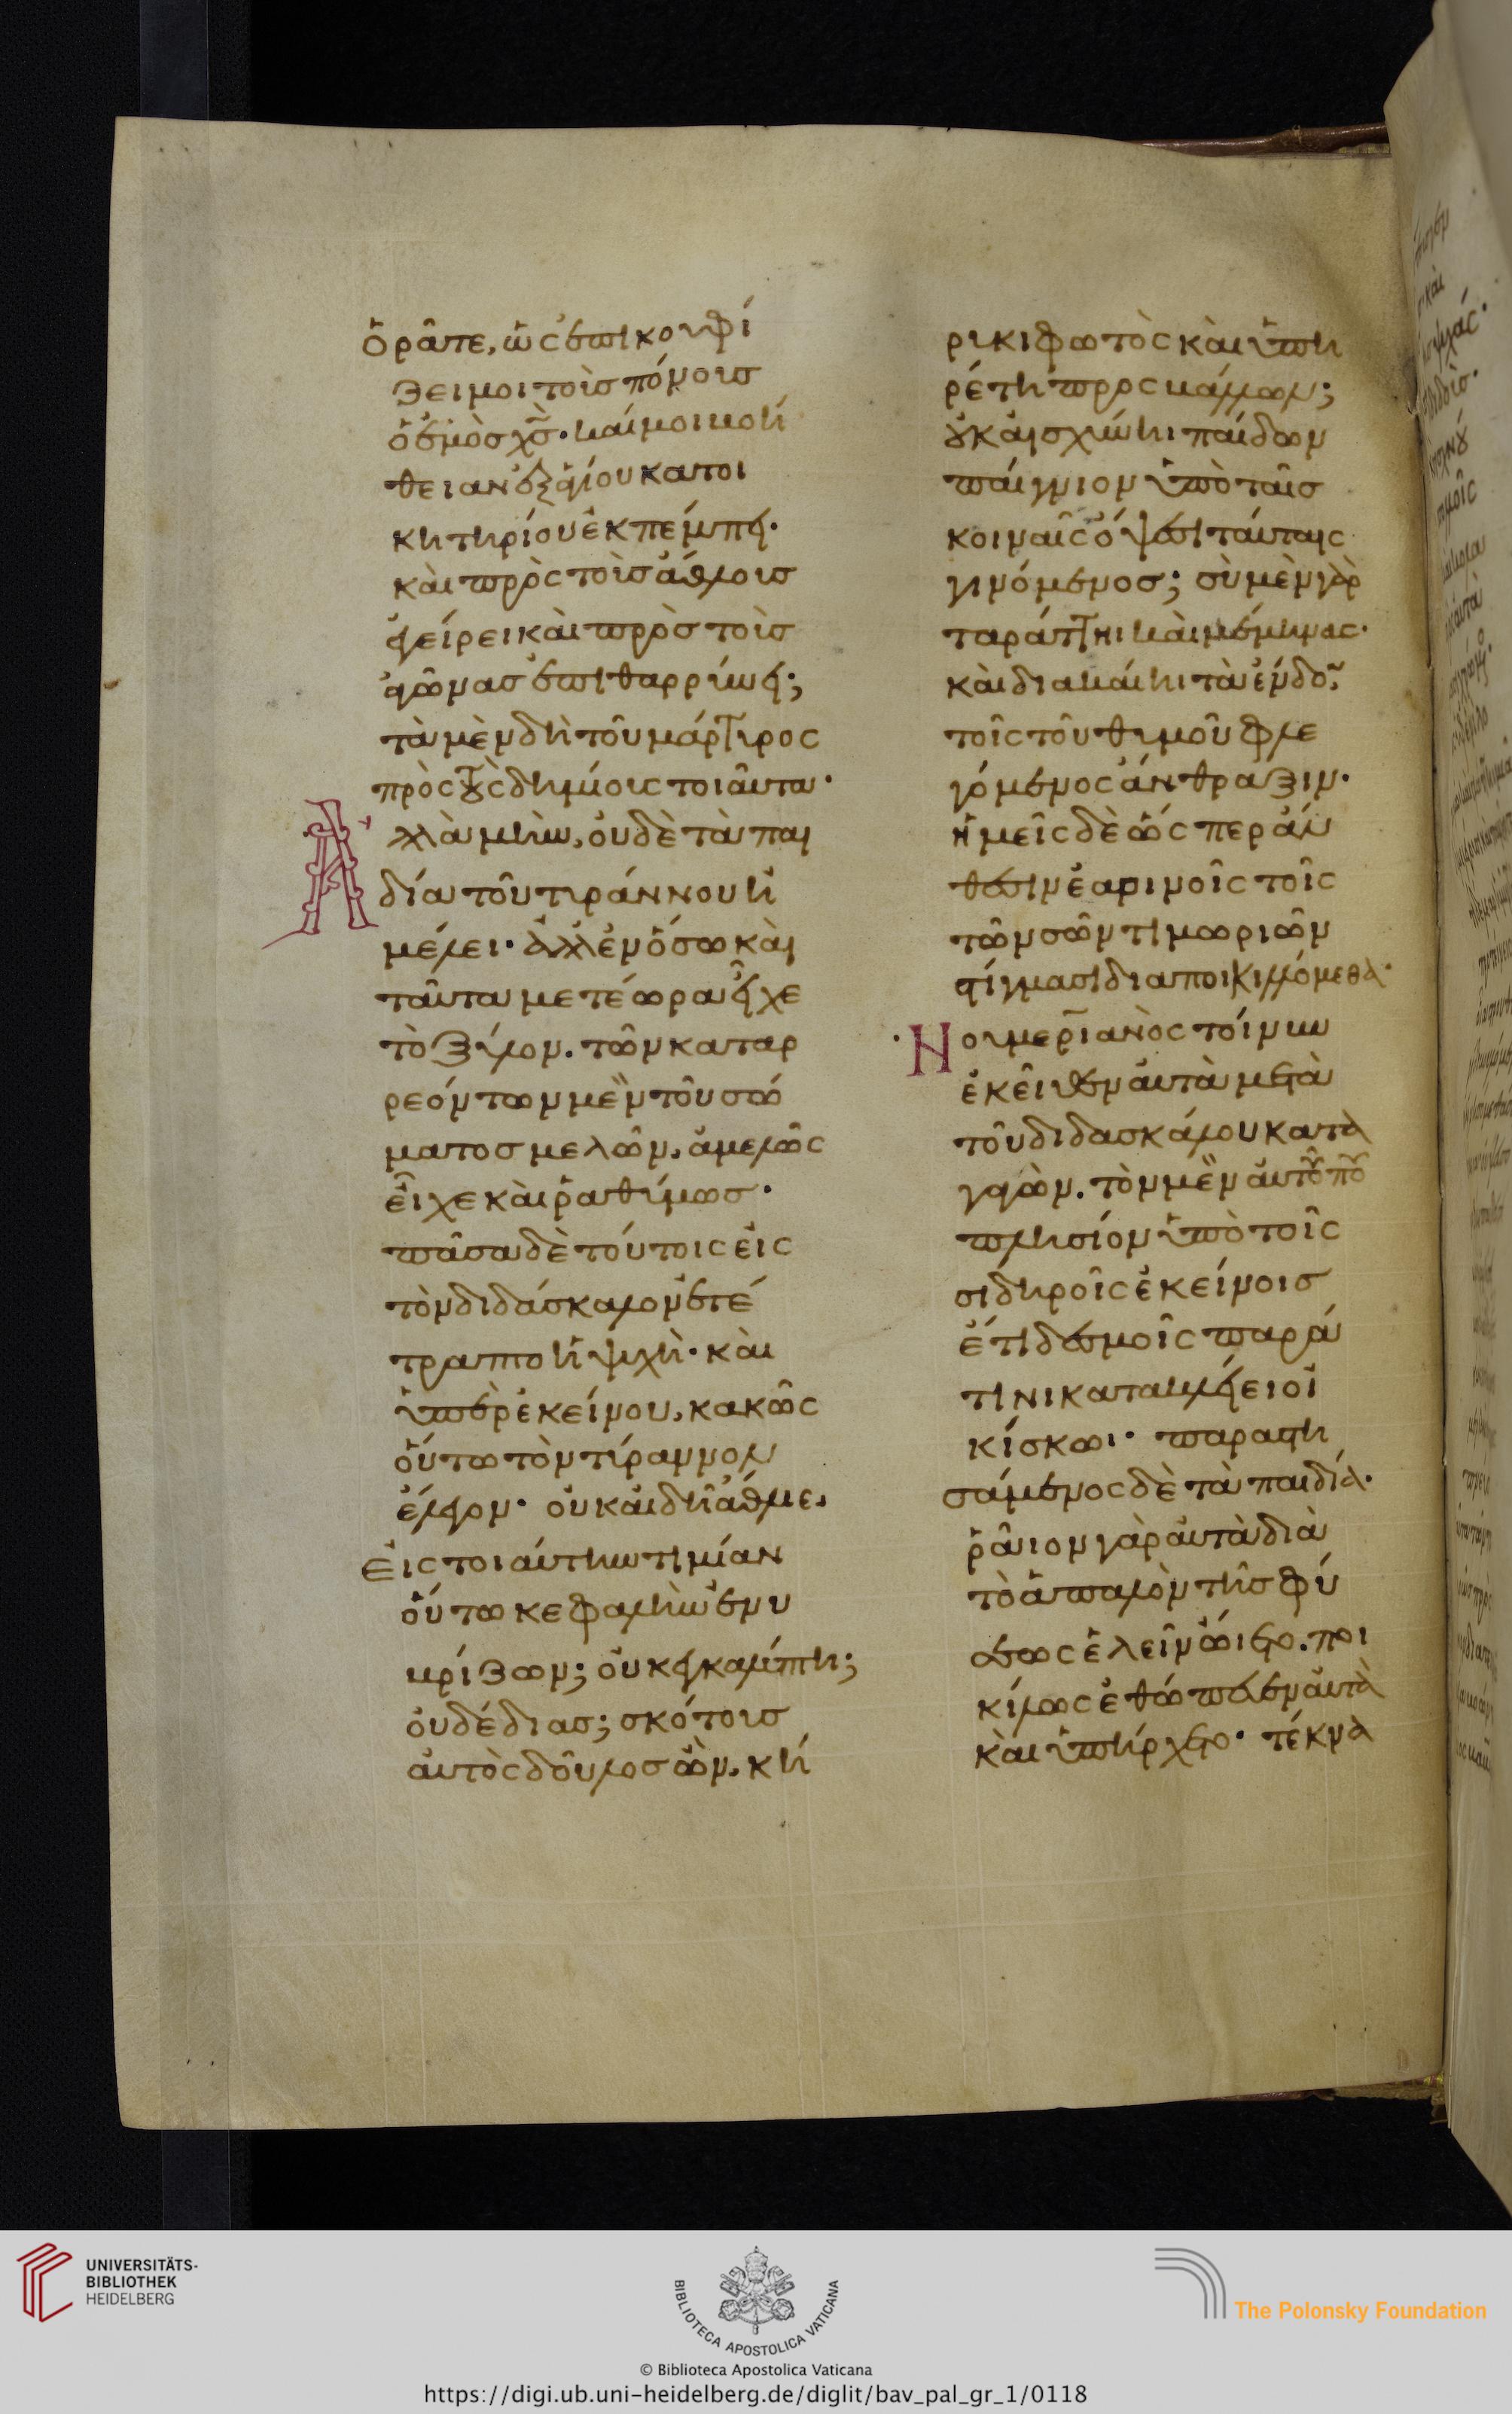 ὁρᾶτε, ὡς ἐπικουφί
ζει μοι τοῖς πόνοις
ὁ ἐμὸς χ̅ς̅· κἀί μοι βοή
θειαν ἐξ ἁγίου κατοι
κητηρίου ἐκπέμπει·
καὶ πρὸς τοῖς ἄθλοις
ἐγείρει καὶ πρὸς τοὺς
ἀγῶνας ἐπιθαρρύνει;
τὰ μὲν δὴ τοῦ μάρτυρος
πρὸς τοὺς δημίους τοιαῦτα·
Ἀλλὰ μὴν, οὐδὲ τὰ παι
δία τοῦ τυράννου ἠ
μέλει· ἀλλ' ἐν ὅσω καὶ
ταῦτα μετέωρα εἶχε
τὸ ξύλον. τῶν καταρ
ρεόντων μὲν τοῦ σώ
ματος μελῶν, ἀμελῶς
εἶχε καὶ ῥαθύμως·
πᾶσα δὲ τούτοις εἰς
τὸν διδάσκαλον ἐτέ
τραπτο ἡ ψυχή· καὶ
ὑπὲρ ἐκείνου, κακῶς
οὕτω τὸν τύραννον
ἔλεγον· οὐκ αἰδῆ ἄθλιε,
Εἰς τοιαύτην τιμίαν
οὕτω κεφαλὴν ἐνυ
βρίζων; οὐκ ἐγκαλύπτη;
οὐδέδιας; σκότους
αὐτὸς δοῦλος ὢν, κή
ρυκι φωτὸς καὶ ὑπη
ρέτη προσβάλλων;
οὐκ αἰσχύνηι παίδων
παίγνιον ὑπὸ ταῖς
κοιναῖς ὄψεσι ταύταις
γινόμενος; σὺ μὲν γὰρ
ταράττηι καὶ μέμηνας·
καὶ διακάηι τὰ ἔνδον,
τοῖς τοῦ θυμοῦ φλε
γόμενος ἄνθραξιν·
ἡμεῖς δὲ ὥσπερ ἄν
θεσιν ἐαρινοῖς τοῖς
τῶν σῶν τιμωριῶν
στίγμασι διαποικιλλόμεθα·
Νουμεριανὸς τοίνυν
ἐκεῖθεν αὐτὰ μετὰ
τοῦ διδασκάλου κατα
γαγὼν. τὸν μὲν αὐτοῦ που
πλησίον ὑπὸ τοῖς
σιδηροῖς ἐκείνοις
ἔτι δεσμοῖς παρά
τινι κατακλείει οἰ
κίσκωι· παραστη
σάμενος δὲ τὰ παιδία·
ῥᾶιον γὰρ αὐτὰ διὰ
τὸ ἁπαλὸν τῆς φύ
σεως ἑλεῖν ὤιετο. ποι
κίλως ἐθώπευεν αὐτὰ
καὶ ὑπήρχετο· τέκνα
UNIVERSITÄTS-
BIBLIOTHEK
HEIDELBERG
BIBLIOTECA APOSTOLICA VATICANA
The Polonsky Foundation
© Biblioteca Apostolica Vaticana
https://digi.ub.uni-heidelberg.de/diglit/bav_pal_gr_1/0118